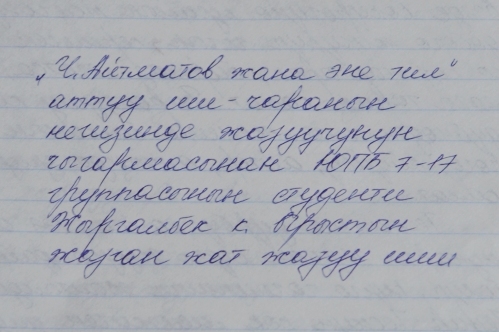 „Ч. Айтматов жана эне тил"
аттуу иш-чаранын
негизинде жазуучунун
чыгармасынан ЮПБ 7-17
группасынын студенти
Жыргалбек к. Ырыстын
жазган жат жазуу иши